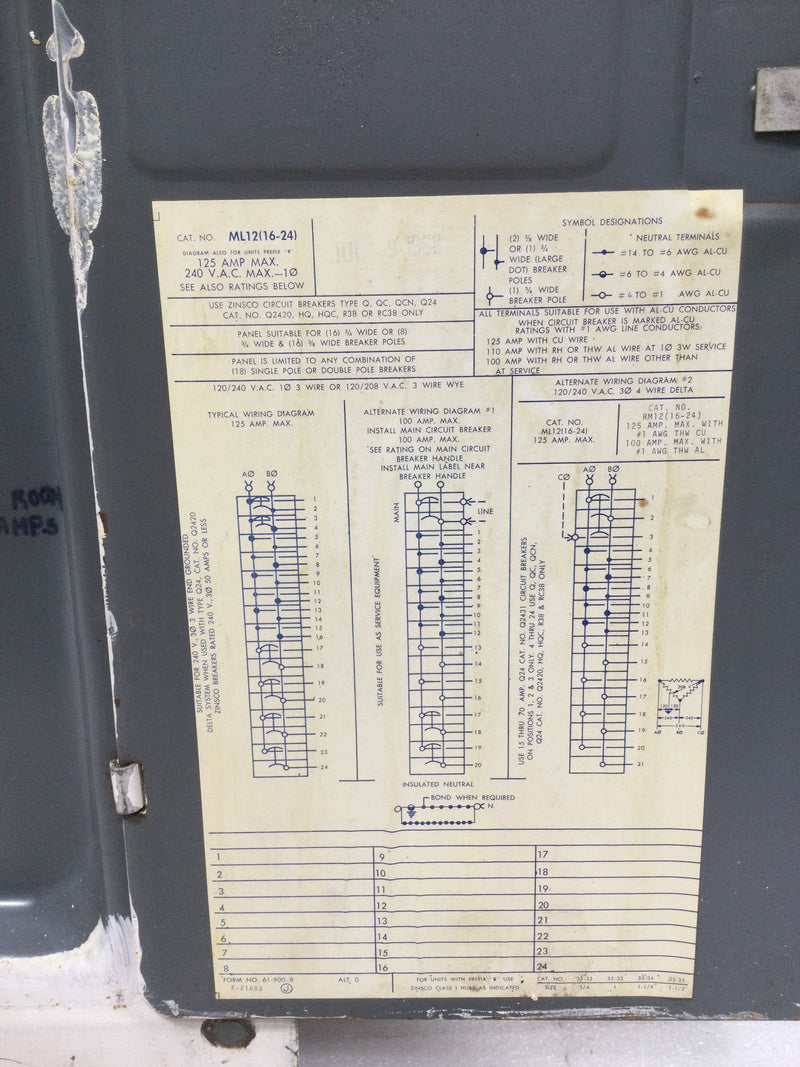 CAT. NO. ML12(16-24)
DIAGRAM ALSO FOR UNITS PREFIX "R"
125 AMP MAX.
240 V.A.C. MAX.—1Ø
SEE ALSO RATINGS BELOW
USE ZINSCO CIRCUIT BREAKERS TYPE Q, QC, QCN, Q24
CAT. NO. Q2420, HQ, HQC, R38 OR RC38 ONLY
PANEL SUITABLE FOR (16) ¾ WIDE OR (8)
¾ WIDE & (16) ⅜ WIDE BREAKER POLES
PANEL IS LIMITED TO ANY COMBINATION OF
(18) SINGLE POLE OR DOUBLE POLE BREAKERS
SYMBOL DESIGNATIONS
(2) ⅜ WIDE
OR (1) ¾
WIDE (LARGE
DOT) BREAKER
POLES
(1) ¾ WIDE
BREAKER POLE
NEUTRAL TERMINALS
#14 TO #6 AWG AL-CU
#6 TO #4 AWG AL-CU
#4 TO #1 AWG AL-CU
ALL TERMINALS SUITABLE FOR USE WITH AL-CU CONDUCTORS
WHEN CIRCUIT BREAKER IS MARKED AL-CU
RATINGS WITH #1 AWG LINE CONDUCTORS:
125 AMP WITH CU WIRE
110 AMP WITH RH OR THW AL WIRE AT 1Ø 3W SERVICE
100 AMP WITH RH OR THW AL WIRE OTHER THAN
AT SERVICE
120/240 V.A.C. 1Ø 3 WIRE OR 120/208 V.A.C. 3 WIRE WYE
TYPICAL WIRING DIAGRAM
125 AMP. MAX.
AØ BØ
1
2
3
4
5
6
7
8
9
10
11
12
13
14
15
16
17
18
19
20
21
22
23
24
SUITABLE FOR 240 V, 3Ø 3 WIRE END GROUNDED
DELTA SYSTEM WHEN USED WITH TYPE Q24, CAT. NO. Q2420
ZINSCO BREAKERS RATED 240 V, 3Ø 50 AMPS OR LESS
ALTERNATE WIRING DIAGRAM #1
100 AMP. MAX.
INSTALL MAIN CIRCUIT BREAKER
100 AMP. MAX.
SEE RATING ON MAIN CIRCUIT
BREAKER HANDLE
INSTALL MAIN LABEL NEAR
BREAKER HANDLE
MAIN
LINE
1
2
3
4
5
6
7
8
9
10
11
12
13
14
15
16
17
18
19
20
SUITABLE FOR USE AS SERVICE EQUIPMENT
INSULATED NEUTRAL
BOND WHEN REQUIRED
N
ALTERNATE WIRING DIAGRAM #2
120/240 V.A.C. 3Ø 4 WIRE DELTA
CAT. NO.
ML12(16-24)
125 AMP. MAX.
CAT. NO.
RM12(16-24)
125 AMP. MAX. WITH
#1 AWG THW CU
100 AMP. MAX. WITH
#1 AWG THW AL
CØ AØ BØ
1
2
3
4
5
6
7
8
9
10
11
12
13
14
15
16
17
18
19
20
21
USE 15 THRU 70 AMP. Q24 CAT. NO. Q2431 CIRCUIT BREAKERS
ON POSITIONS 1, 2 & 3 ONLY. 4 THRU 24 USE Q, QC, QCN,
Q24 CAT. NO. Q2420, HQ, HQC, R38 & RC38 ONLY
208 V
120 120
240 240
240
AØ BØ CØ
ROOM
AMPS
1 9 17
2 10 18
3 11 19
4 12 20
5 13 21
6 14 22
7 15 23
8 16 24
FORM NO. 61-900-8 ALT. 0
E-21603
FOR UNITS WITH PREFIX "R" USE
ZINSCO CLASS I HUBS AS INDICATED
CAT. NO. 35-32 35-33 35-34 35-35
SIZE 3/4 1 1-1/4 1-1/2